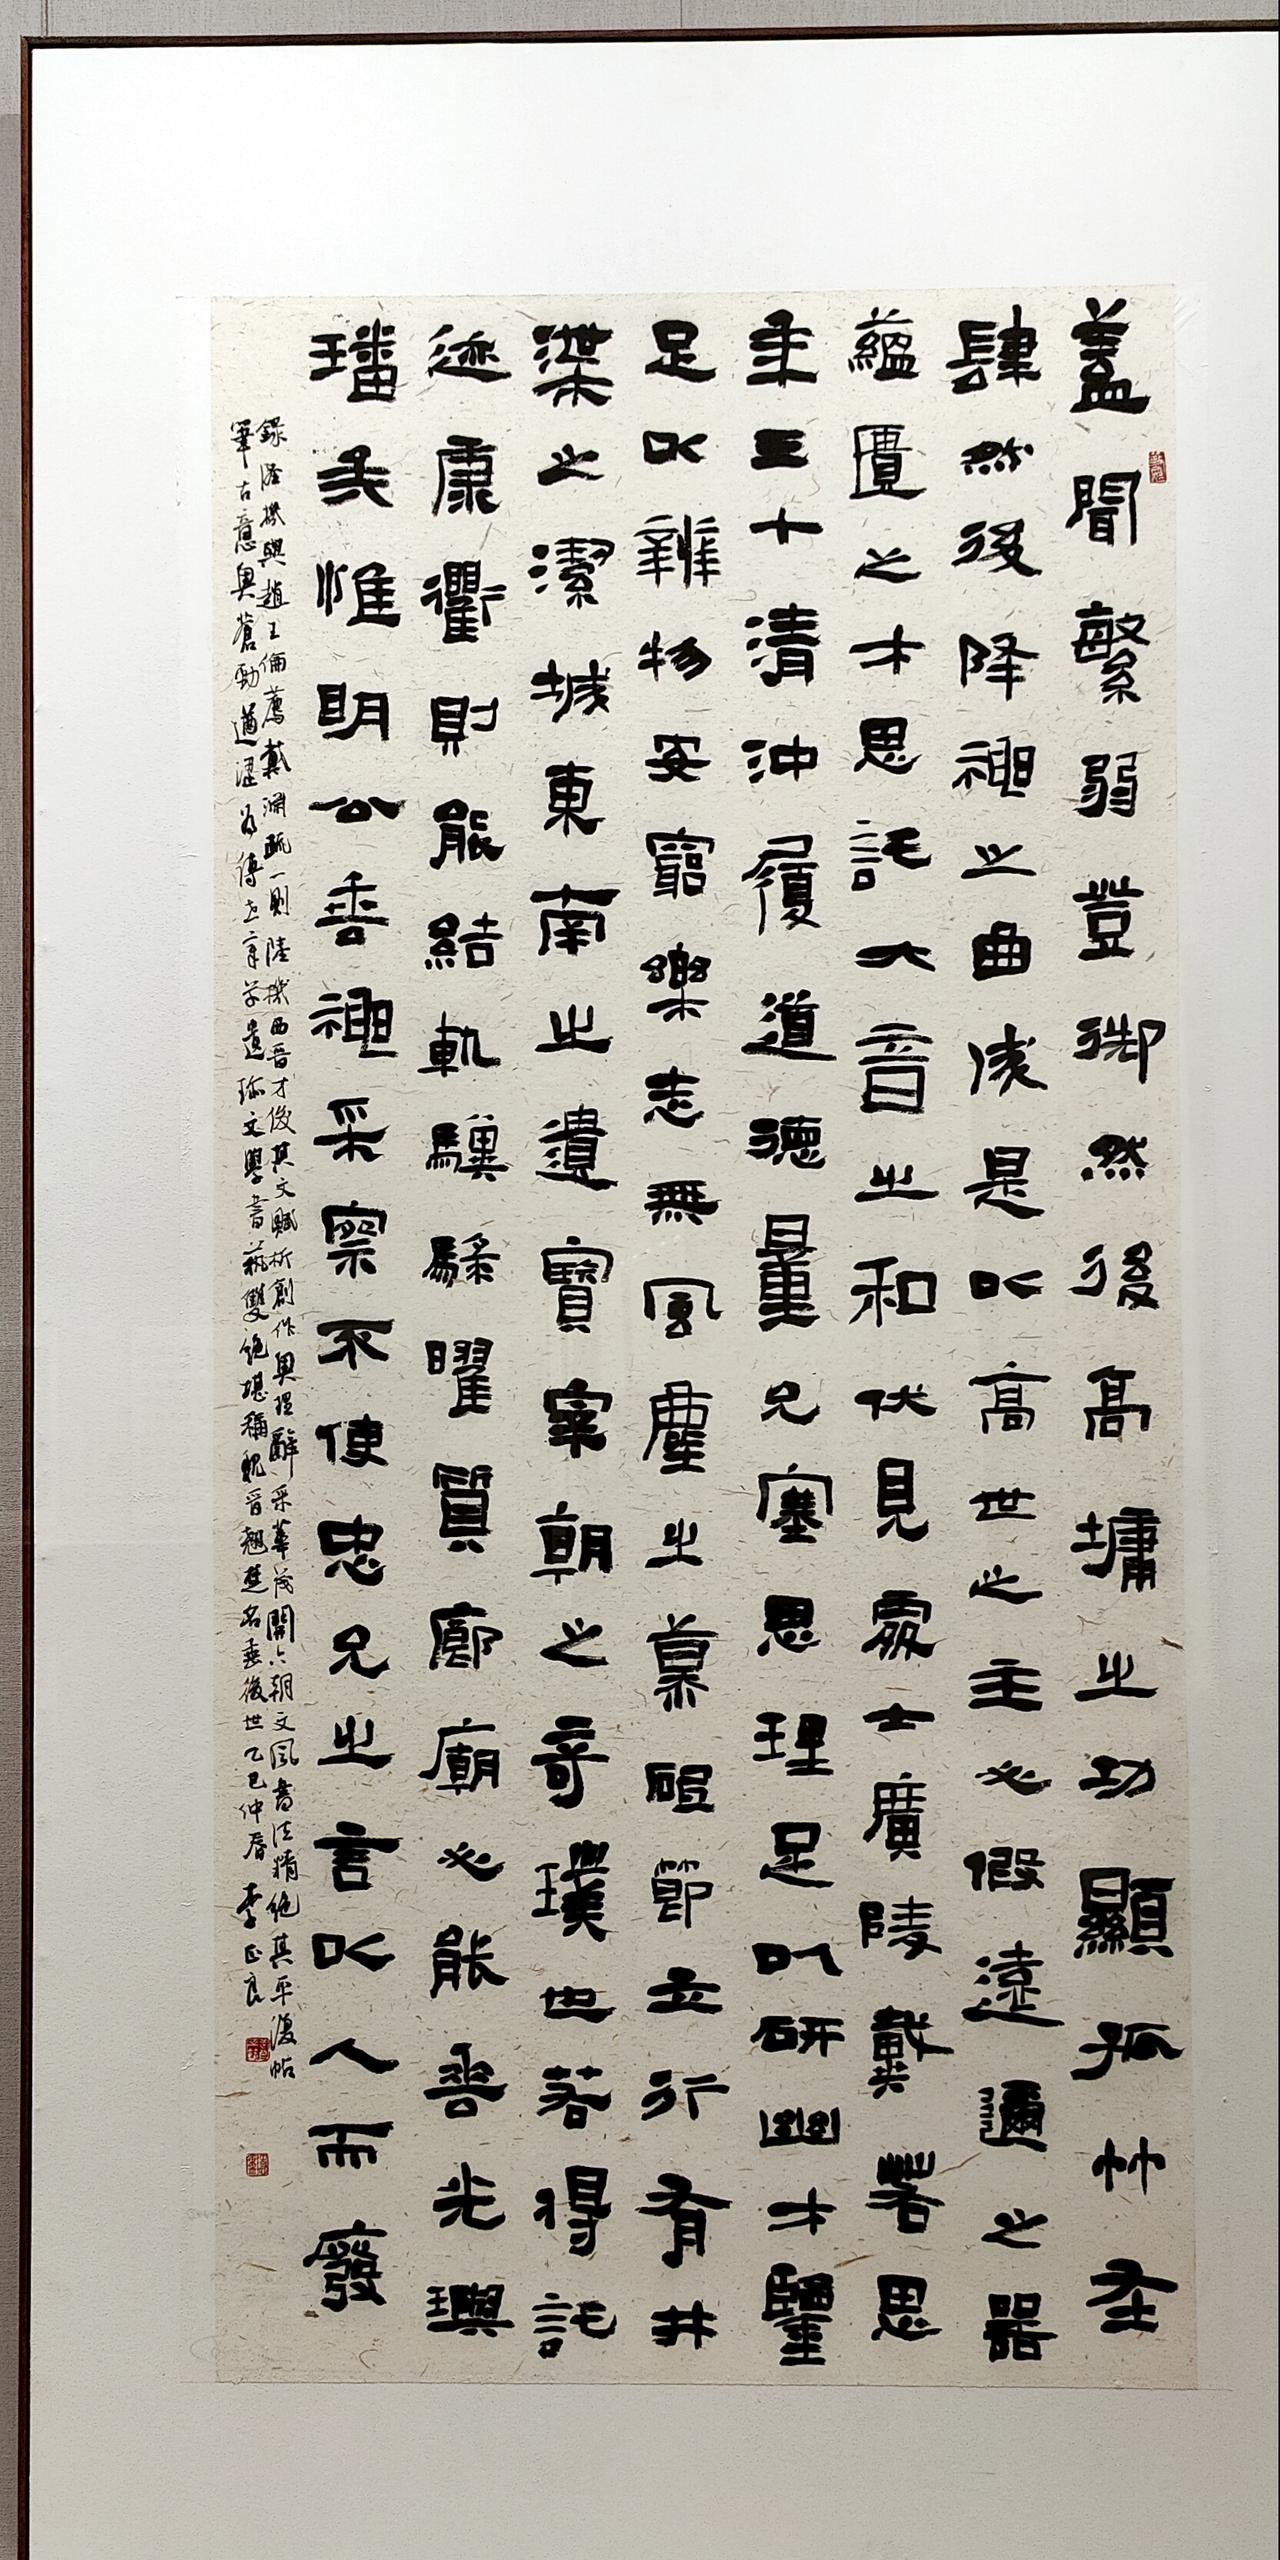 蓋聞繁弱登御然後高墉之功顯孤竹在
肆然後降神之曲成是以高世之主必假遠邇之器
蘊匱之才思託大音之和伏見處士廣陵戴若思
年三十清沖履道德量允塞思理足以研幽才鑒
足以辨物安窮樂志無風塵之慕砠節立行有井
渫之潔城東南之遺寶宰朝之奇璞也若得託
迹康衢則能結軌驥騄曜質廊廟必能垂光璵
璠矣惟明公垂神采察不使忠允之言以人而廢
錄陸機與趙王倫薦戴淵疏一則陸機西晉才俊其文賦析創作奧理辭采華茂開六朝文風書法精絕其平復帖
筆古意奧蒼勁遒澀為傳世章草遺珍文學書藝雙絕堪稱魏晉翹楚名垂後世乙巳仲春李正良